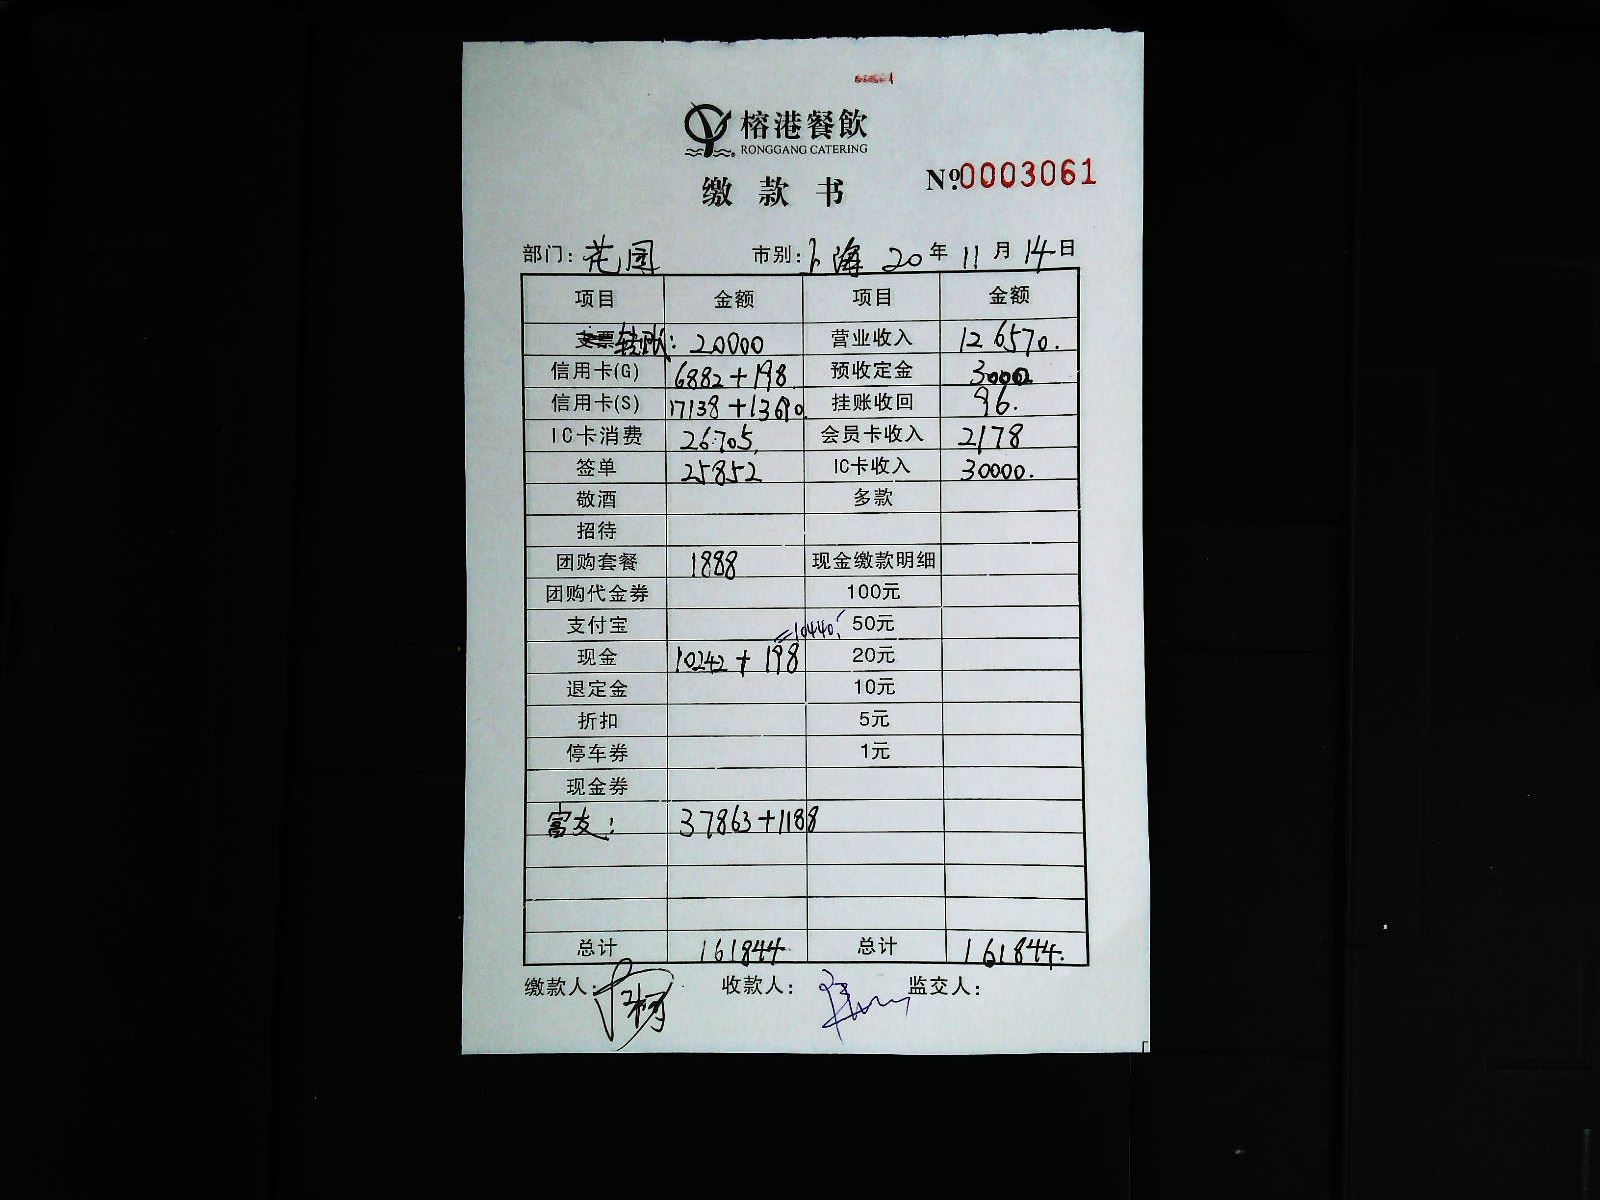 榕港餐飲
RONGGANG CATERING
缴款书 №:0003061
部门: 花园 市别: 上海 20年 11月 14日
项目 金额 项目 金额
支票 转账: 20000 营业收入 126570.
信用卡(G) 6882+198 预收定金 3000
信用卡(S) 17138+13690. 挂账收回 96.
IC卡消费 26705. 会员卡收入 2178
签单 25852 IC卡收入 30000.
敬酒 多款
招待
团购套餐 1888 现金缴款明细
团购代金券 100元
支付宝 =10440. 50元
现金 10242+198 20元
退定金 10元
折扣 5元
停车券 1元
现金券
富友: 37863+1188
总计 161844 总计 161844.
缴款人: 收款人: 监交人: